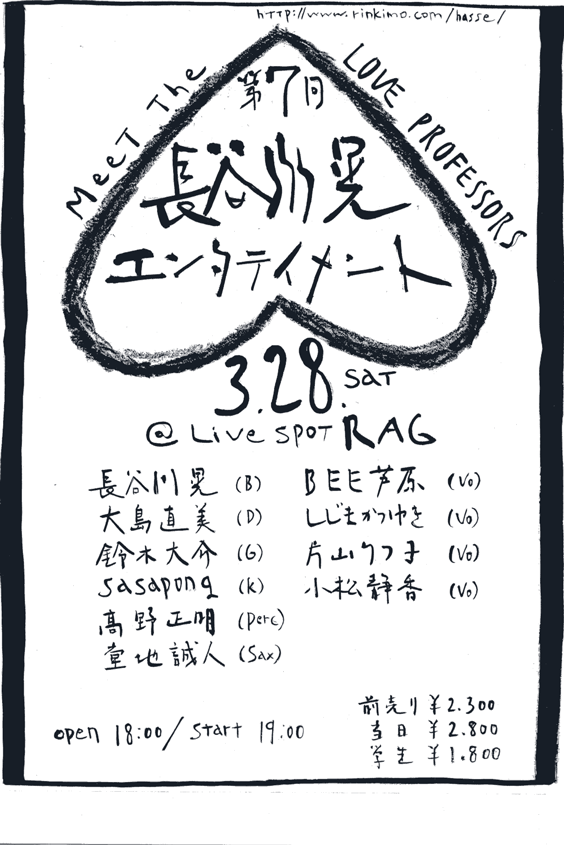 http://www.rinkimo.com/hasse/
MeeT The LOVE PROFESSORS
第7回
長谷川晃
エンタテイメント
3.28. SAT
@ Live SPOT RAG
長谷川晃 (B)
大島直美 (D)
鈴木大介 (G)
sasapong (K)
高野正明 (Perc)
堂地誠人 (Sax)
BEE芦原 (Vo)
しじまかつゆき (Vo)
片山りつ子 (Vo)
小松静香 (Vo)
open 18:00/start 19:00
前売り ¥2.300
当日 ¥2.800
学生 ¥1.800